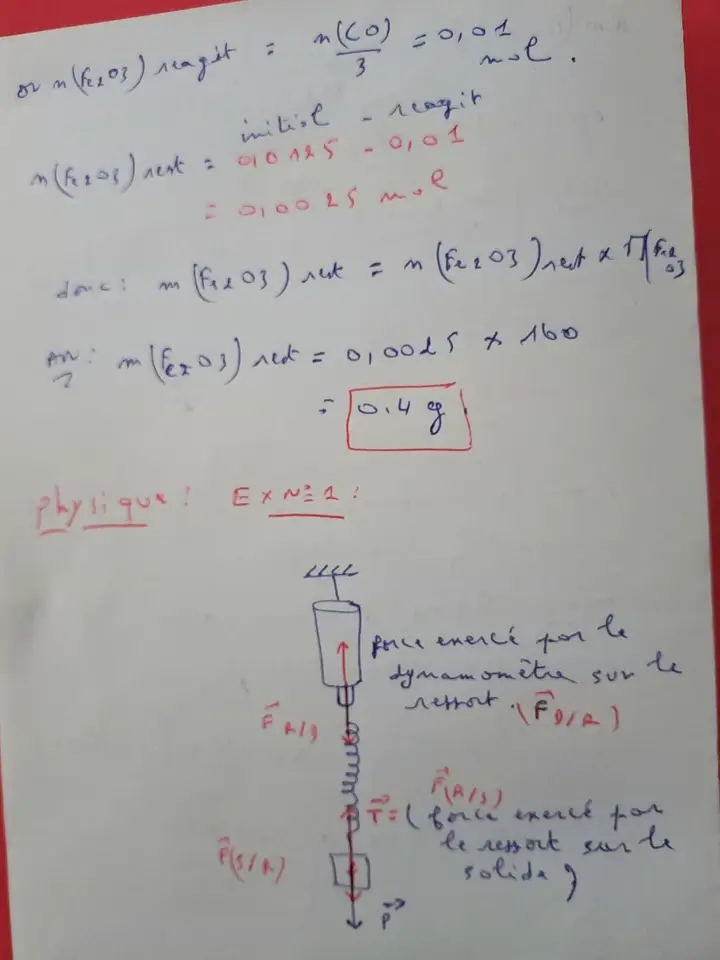 or n(Fe2O3) reagit = n(CO)/3 = 0,01 mol.
initial - reagit
n(Fe2O3) rest = 0,0125 - 0,01
= 0,0025 mol
donc: m(Fe2O3) rest = n(Fe2O3) rest x M(Fe2O3)
AN: m(Fe2O3) rest = 0,0025 x 160
= 0.4 g.
physique: Ex N=1:
force exercé par le
dynamomètre sur le
ressort. (F⃗ D/R)
F⃗ R/D
F⃗(R/S)
T⃗ = (force exercé par
le ressort sur le
solide)
F⃗(S/R)
P⃗